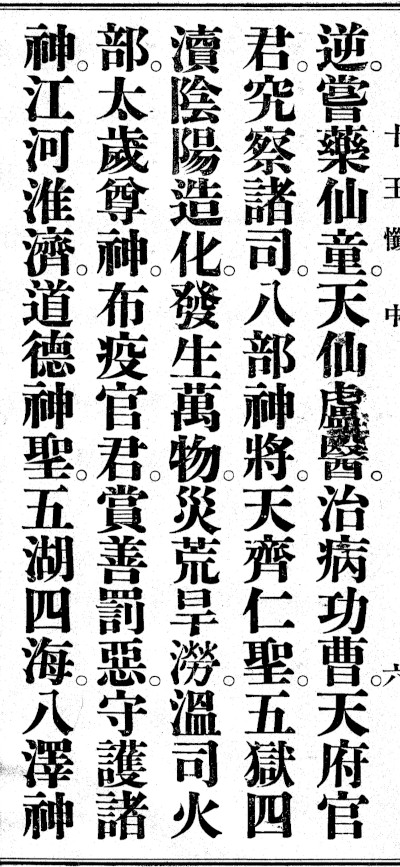 十王懺中 六
逆。嘗藥仙童。天仙盧醫。治病功曹。天府官
君。究察諸司。八部神將。天齊仁聖。五獄四
瀆。陰陽造化。發生萬物。災荒旱澇。溫司火
部。太歲尊神。布疫官君。賞善罰惡。守護諸
神。江河淮濟。道德神聖。五湖四海。八澤神